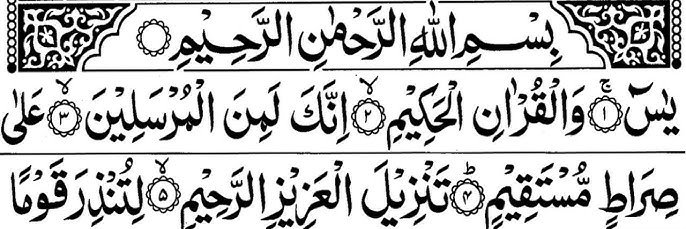 بِسْمِ اللّٰهِ الرَّحْمٰنِ الرَّحِيْمِ
يٰسٓ ۚ﴿۱﴾ وَالْقُرْاٰنِ الْحَكِيْمِ ۙ﴿۲﴾ اِنَّكَ لَمِنَ الْمُرْسَلِيْنَ ۙ﴿۳﴾ عَلٰى
صِرَاطٍ مُّسْتَقِيْمٍ ؕ﴿۴﴾ تَنْزِيْلَ الْعَزِيْزِ الرَّحِيْمِ ۙ﴿۵﴾ لِتُنْذِرَ قَوْمًا